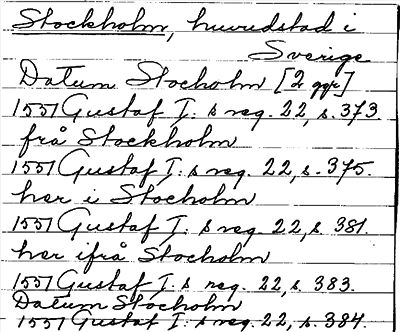 Stockholm, huvudstad i
Sverige
Datum Stocholm [2 ggr]
1557 Gustaf I: s reg. 22, s. 373
frå Stockholm
1557 Gustaf I: s reg. 22, s. 375.
her i Stocholm
1557 Gustaf I: s reg. 22, s. 381.
her ifrå Stocholm
1557 Gustaf I: s reg. 22, s. 383.
Datum Stocholm
1557 Gustaf I: s reg. 22, s. 384.